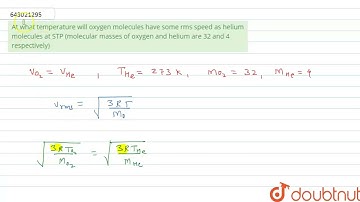 645021295
At what temperature will oxygen molecules have some rms speed as helium
molecules at STP (molecular masses of oxygen and helium are 32 and 4
respectively)
V_O₂ = V_He , T_He = 273 K , M_O₂ = 32, M_He = 4
V_rms = √(3RT/M₀)
√(3RT_O₂/M_O₂) = √(3RT_He/M_He)
doubtnut